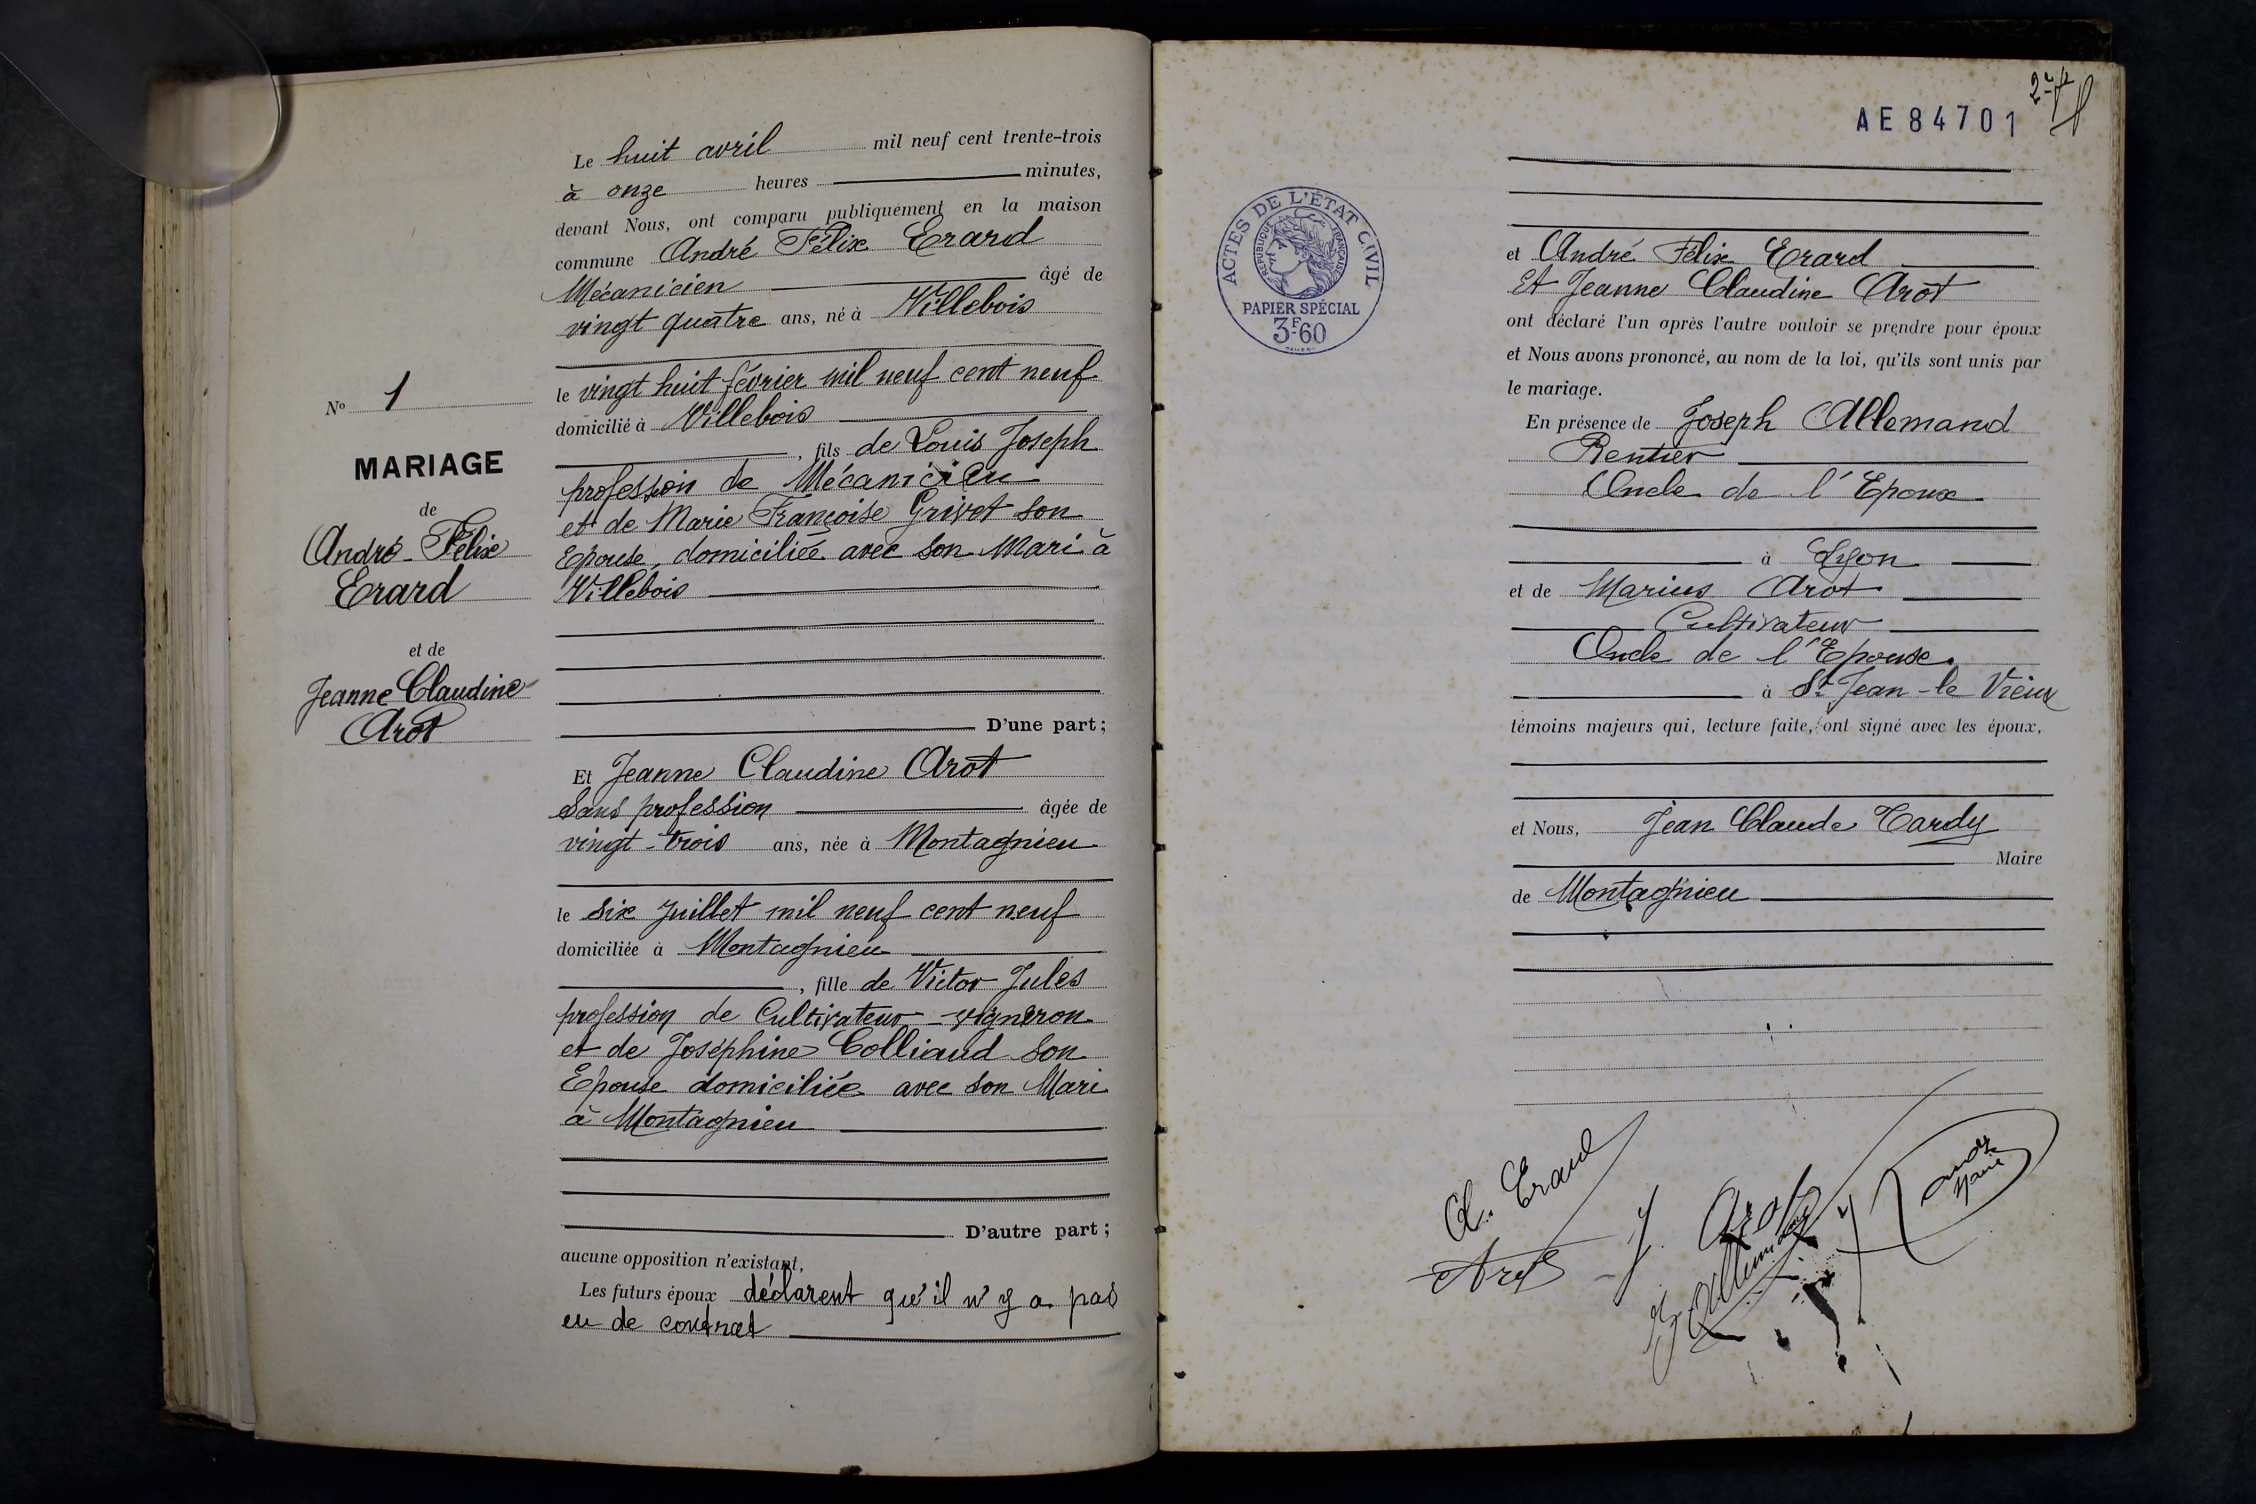 Le huit avril mil neuf cent trente-trois
à onze heures minutes,
devant Nous, ont comparu publiquement en la maison
commune André Félix Erard
Mécanicien âgé de
vingt quatre ans, né à Villebois
le vingt huit février mil neuf cent neuf
domicilié à Villebois
, fils de Louis Joseph
profession de Mécanicien
et de Marie Françoise Grivet son
Epouse, domiciliée avec son Mari à
Villebois
D'une part ;
Nº 1
MARIAGE
de
André-Félix
Erard
et de
Jeanne Claudine
Arot
Et Jeanne Claudine Arot
Sans profession âgée de
vingt-trois ans, née à Montagnieu
le six juillet mil neuf cent neuf
domiciliée à Montagnieu
, fille de Victor Jules
profession de Cultivateur-vigneron
et de Joséphine Colliaud son
Epouse domiciliée avec son Mari
à Montagnieu
D'autre part ;
aucune opposition n'existant,
Les futurs époux déclarent qu'il n'y a pas
eu de contrat
AE 84701
ACTES DE L'ÉTAT CIVIL
RÉPUBLIQUE FRANÇAISE
PAPIER SPÉCIAL
3F60
et André Félix Erard
Et Jeanne Claudine Arot
ont déclaré l'un après l'autre vouloir se prendre pour époux
et Nous avons prononcé, au nom de la loi, qu'ils sont unis par
le mariage.
En présence de Joseph Allemand
Rentier
Oncle de l'Epoux
à Lyon
et de Marius Arot
Cultivateur
Oncle de l'Epouse
à St Jean-le Vieux
témoins majeurs qui, lecture faite, ont signé avec les époux,
et Nous, Jean Claude Tardy
Maire
de Montagnieu
A. Erard
Arot
J. Arot
J Allemand